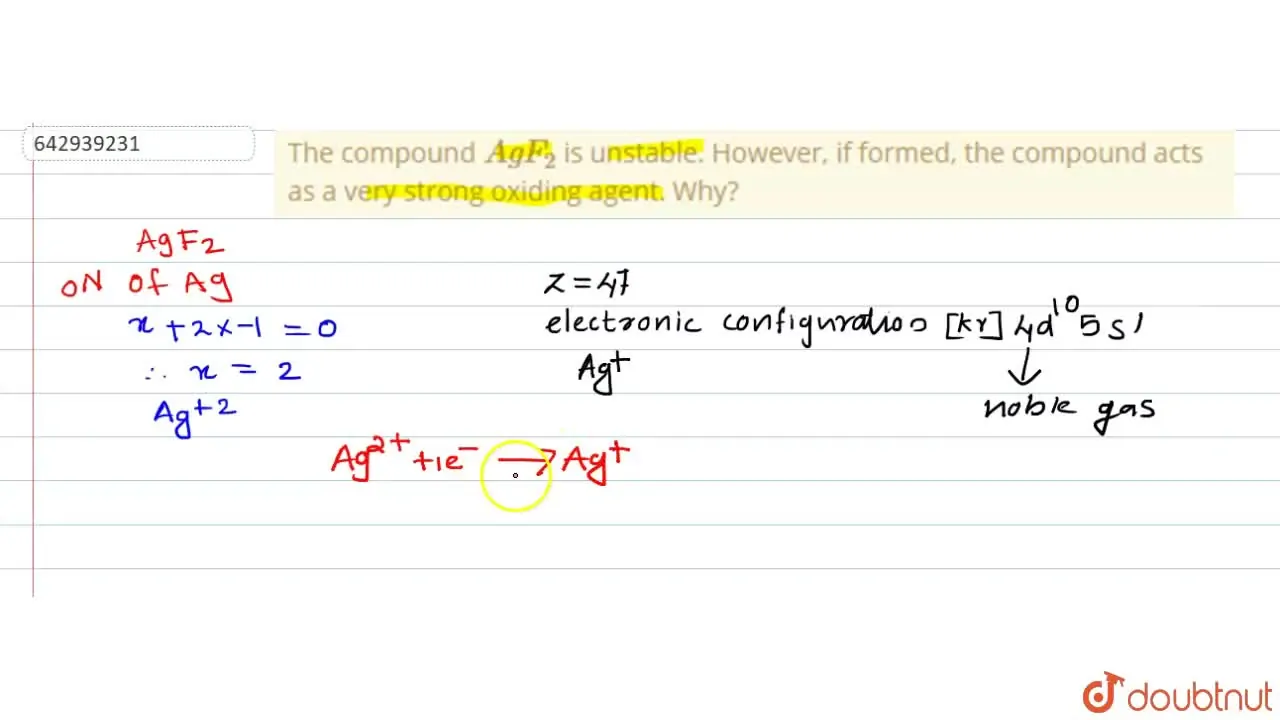 642939231
The compound AgF₂ is unstable. However, if formed, the compound acts
as a very strong oxiding agent. Why?
AgF₂
ON of Ag
x + 2 x -1 = 0
∴ x = 2
Ag⁺²
Z = 47
electronic configuration [kr] 4d¹⁰ 5s¹
Ag⁺
noble gas
Ag²⁺ + 1e⁻ → Ag⁺
doubtnut